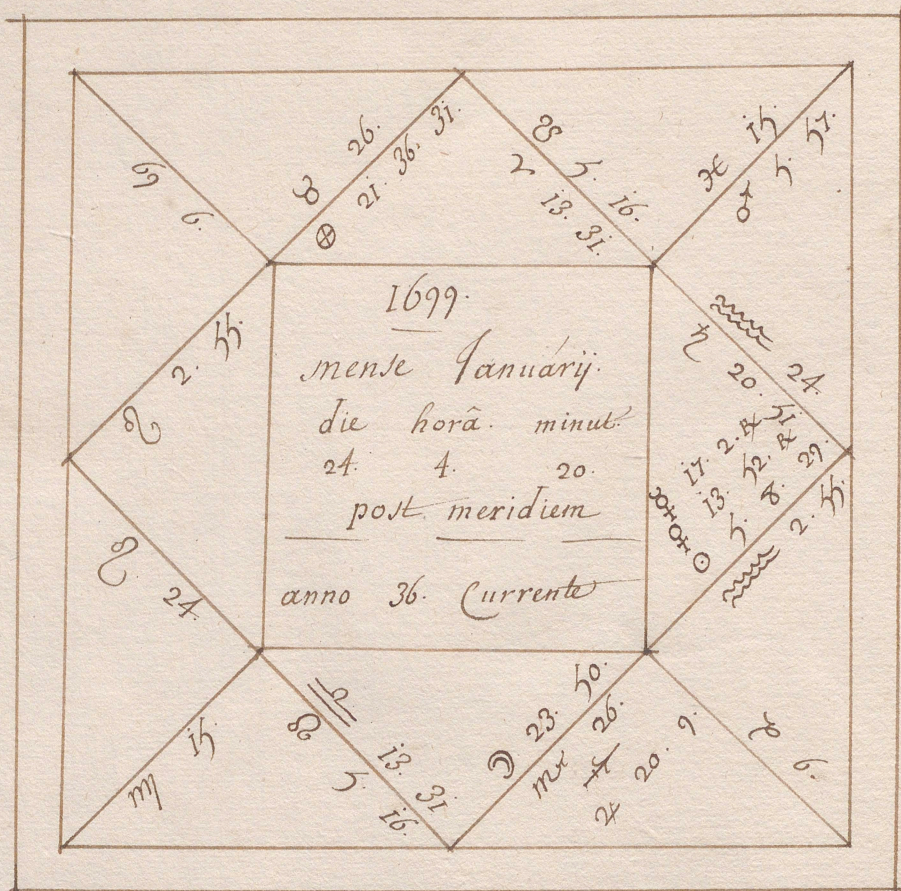 1699.
mense Januarij.
die horâ. minut.
24. 4. 20.
post meridiem
anno 36. Currente
♉ 26.
⊗ 21. 36. 31.
☋ 5. 16.
♈ 13. 31.
♓ 15
♂ 5. 57.
♒ 24.
♄ 20. 51.
☿ 17. 2. ℞
♀ 13. 52. ℞
☉ 5. 8. 29.
♒ 2. 55.
♑ 6.
☽ 23. 50.
♏ 26.
♐
♃ 20. 9.
♎ 13. 31
☊ 5. 16.
♍ 15
♌ 24.
♌ 2. 55.
♋ 6.